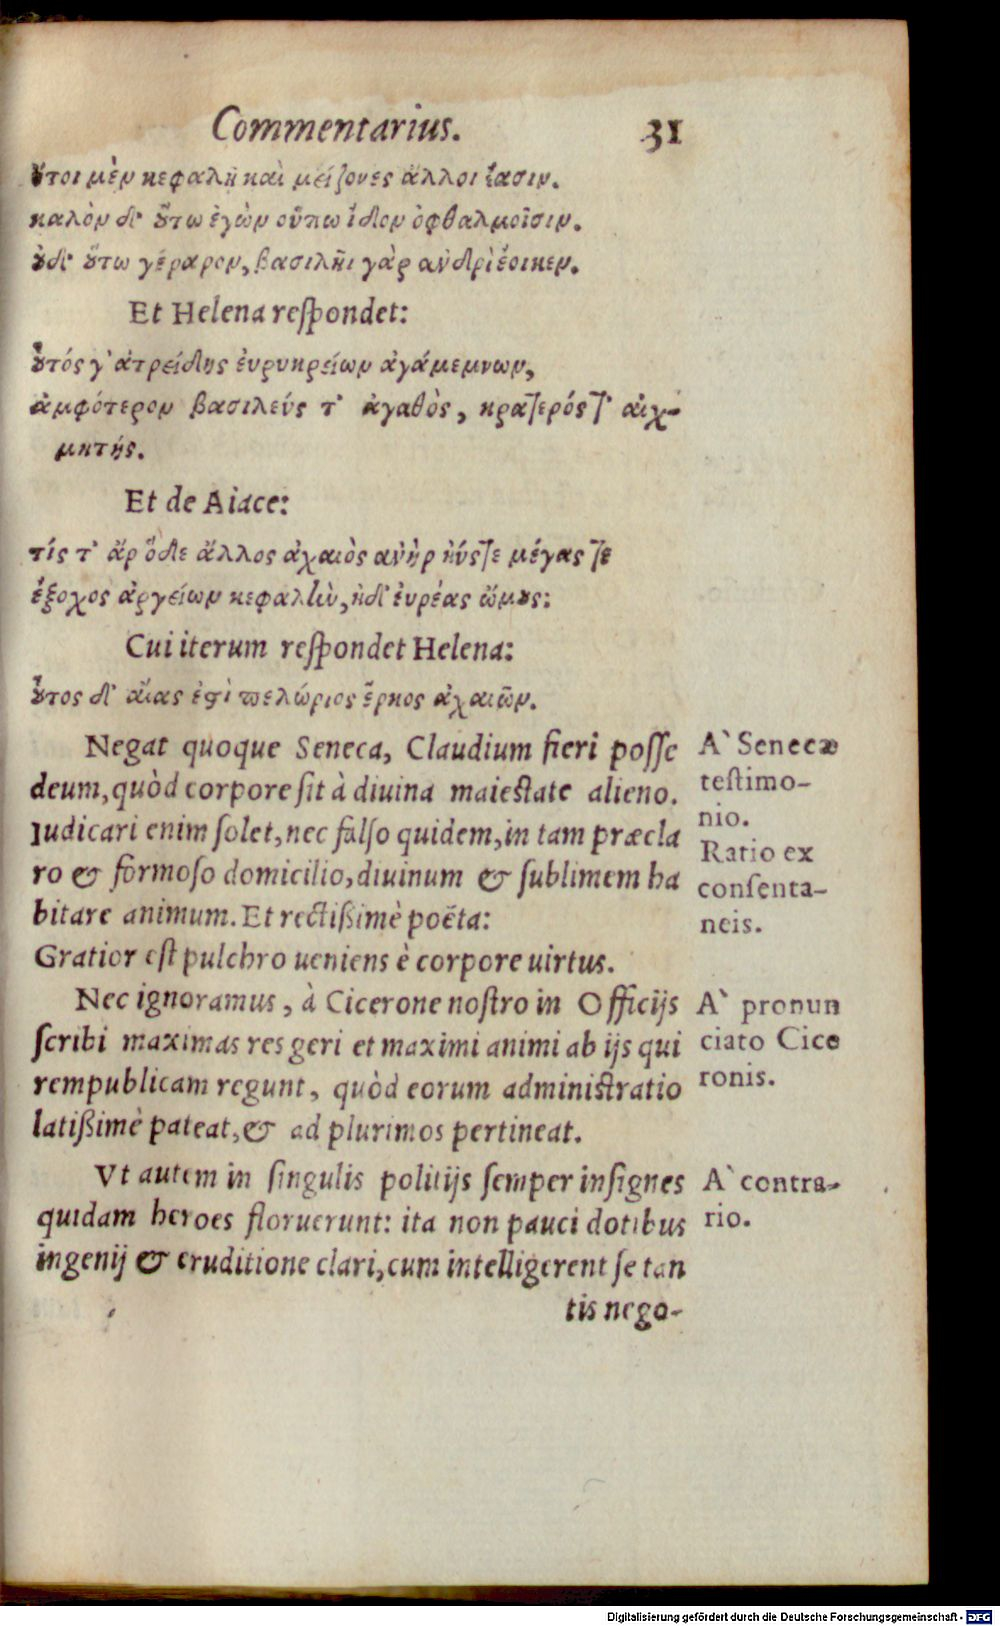 Commentarius. 31
ȣ̓τοι μὲν κεφαλῇ καὶ μείζονες ἄλλοι ἔασιν.
καλὸν δ᾽ ȣ̔́τω ἐγὼν οὔπω ἴδιον ὀφθαλμοῖσιν.
ȣ̓δ᾽ ȣ̔́τω γέραρον, βασιλῆι γὰρ ανδρὶ ἔοικεν.
Et Helena reſpondet:
ȣ̔τός γ᾽ ἀτρείδης ἐυρυκρείων ἀγάμεμνων,
ἀμφότερον βασιλεύς τ᾽ ἀγαθὸς, κρατερός τ᾽ αἰχ-
μητής.
Et de Aiace:
τίς τ᾽ ἄρ ὅδε ἄλλος ἀχαιὸς ανὴρ ἠύς τε μέγας τε
ἔξοχος ἀργείων κεφαλὴν, ἠδ᾽ ἐυρέας ὤμȣς:
Cui iterum reſpondet Helena:
ȣ̔͂τος δ᾽ αἴας ἐστὶ πελώριος ἕρκος ἀχαιῶν.
Negat quoque Seneca, Claudium fieri poſſe
deum, quòd corpore ſit à diuina maieſtate alieno.
Iudicari enim ſolet, nec falſo quidem, in tam præcla
ro & formoſo domicilio, diuinum & ſublimem ha
bitare animum. Et rectißimè poëta:
Gratior eſt pulchro ueniens è corpore uirtus.
Nec ignoramus, à Cicerone noſtro in Officijs
ſcribi maximas res geri et maximi animi ab ijs qui
rempublicam regunt, quòd eorum adminiſtratio
latißimè pateat, & ad plurimos pertineat.
Vt autem in ſingulis politijs ſemper inſignes
quidam heroes floruerunt: ita non pauci dotibus
ingenij & eruditione clari, cum intelligerent ſe tan
tis nego-
A` Senecæ
teſtimo-
nio.
Ratio ex
conſenta-
neis.
A` pronun
ciato Cice
ronis.
A` contra-
rio.
Digitalisierung gefördert durch die Deutsche Forschungsgemeinschaft - DFG